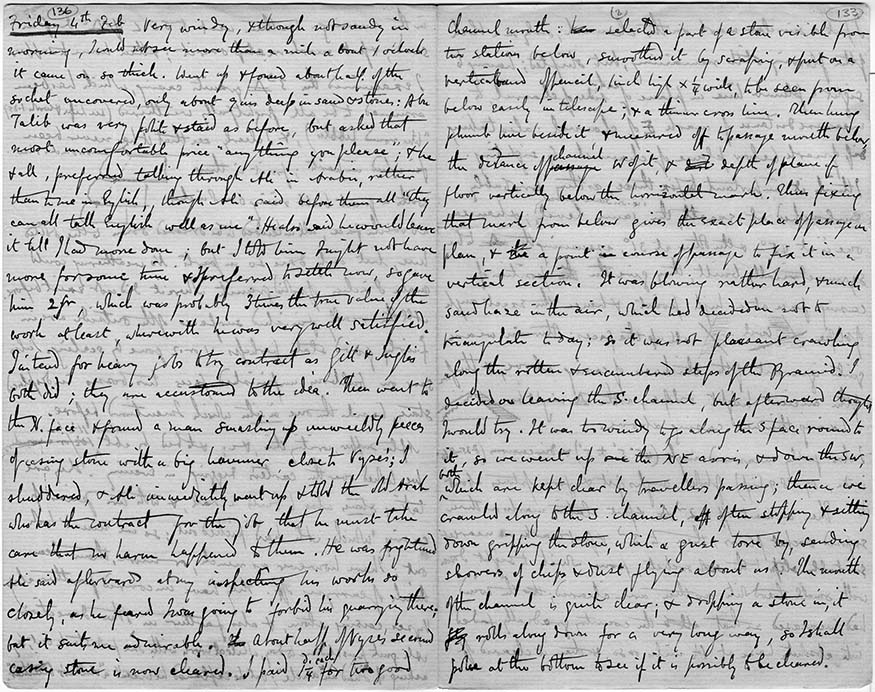 136
Friday 4th Feb Very windy, & though not sandy in
morning, I could not see more than a mile about 1 oclock
it came on so thick. Went up & found about half of the
socket uncovered, only about 9 ins deep in sand & stones: Abu
Talib was very polite & staid as before, but asked that
most uncomfortable price "anything you please"; & he
& all, preferred talking through Ali in Arabic, rather
than to me in English, though Ali said before them all "they
can all talk English well as me". He also said he would leave
it till I had more done; but I told him I might not have
more for some time & I preferred to settle now, so gave
him 2 fr, which was probably 3 times the true value of the
work at least, wherewith he was very well satisfied.
I intend for heavy jobs to try contract as Gill & Inglis
both did; they are accustomed to the idea. Then went to
the N. face & found a man smashing up unwieldy pieces
of casing stone with a big hammer close to Vyse's; I
shuddered, & Ali immediately went up & told the old Arab
who has the contract for the job that he must take
care that no harm happened to them. He was frightened
Ali said afterwards at my inspecting his works so
closely, as he feared I was going to forbid his quarrying there;
but it suits me admirably. About half of Vyse's second
casing stone is now cleared. I paid for two good
(2)
133
channel mouth: selected a part of a stone visible from
two stations below, smoothed it by scraping, & put on a
vertical band of pencil, inch high x ¼ wide, to be seen from
below easily in telescope; & a thinner cross line. Then hung
plumb line beside it & measured off to passage mouth below,
the distance of channel W of it & depth of plane of
floor vertically below the horizontal mark. Thus fixing
that mark from below gives the exact place of passage in
plan, & a point in course of passage to fix it in a
vertical section. It was blowing rather hard, & much
sand haze in the air, which had decided me not to
triangulate today; so it was not pleasant crawling
along the rotten & encumbered steps of the Pyramid. I
decided on leaving the S. channel, but afterward thought
I would try. It was too windy to go along the S face round to
it, so we went up the NE arris, & down the SW,
both
which are kept clear by travellers passing; thence we
crawled along to the S. channel, often stopping & sitting
down gripping the stone, while a gust tore by, sending
showers of chips & dust flying about us. The mouth
of the channel is quite clear; & dropping a stone in, it
rolls along down for a very long way, so I shall
poke at the bottom to see if it is possibly to be cleared.